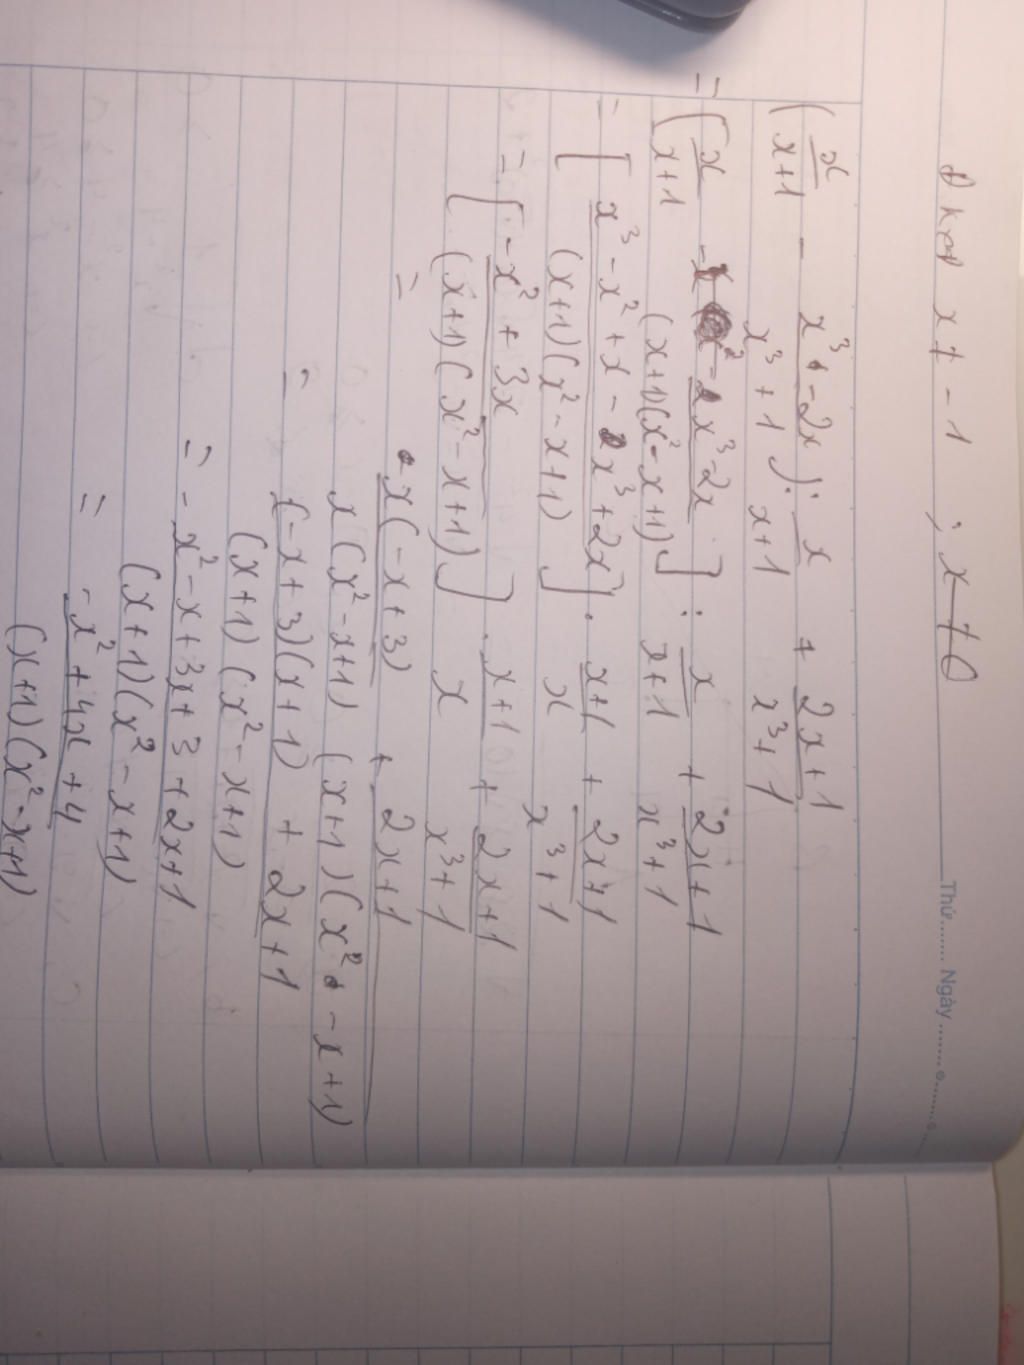 Thứ....... Ngày ...........
ĐKXĐ x ≠ -1 ; x ≠ 0
(x/(x+1) - (x³ - 2x)/(x³+1)) : x/(x+1) + (2x+1)/(x³+1)
= [x/(x+1) - (x³-2x)/((x+1)(x²-x+1))] : x/(x+1) + (2x+1)/(x³+1)
= [(x³-x²+x-x³+2x)/((x+1)(x²-x+1))] . (x+1)/x + (2x+1)/(x³+1)
= [(-x²+3x)/((x+1)(x²-x+1))] . (x+1)/x + (2x+1)/(x³+1)
= x(-x+3)/(x(x²-x+1)) + (2x+1)/((x+1)(x²-x+1))
= ((-x+3)(x+1) + 2x+1)/((x+1)(x²-x+1))
= (-x²-x+3x+3+2x+1)/((x+1)(x²-x+1))
= (-x²+4x+4)/((x+1)(x²-x+1))